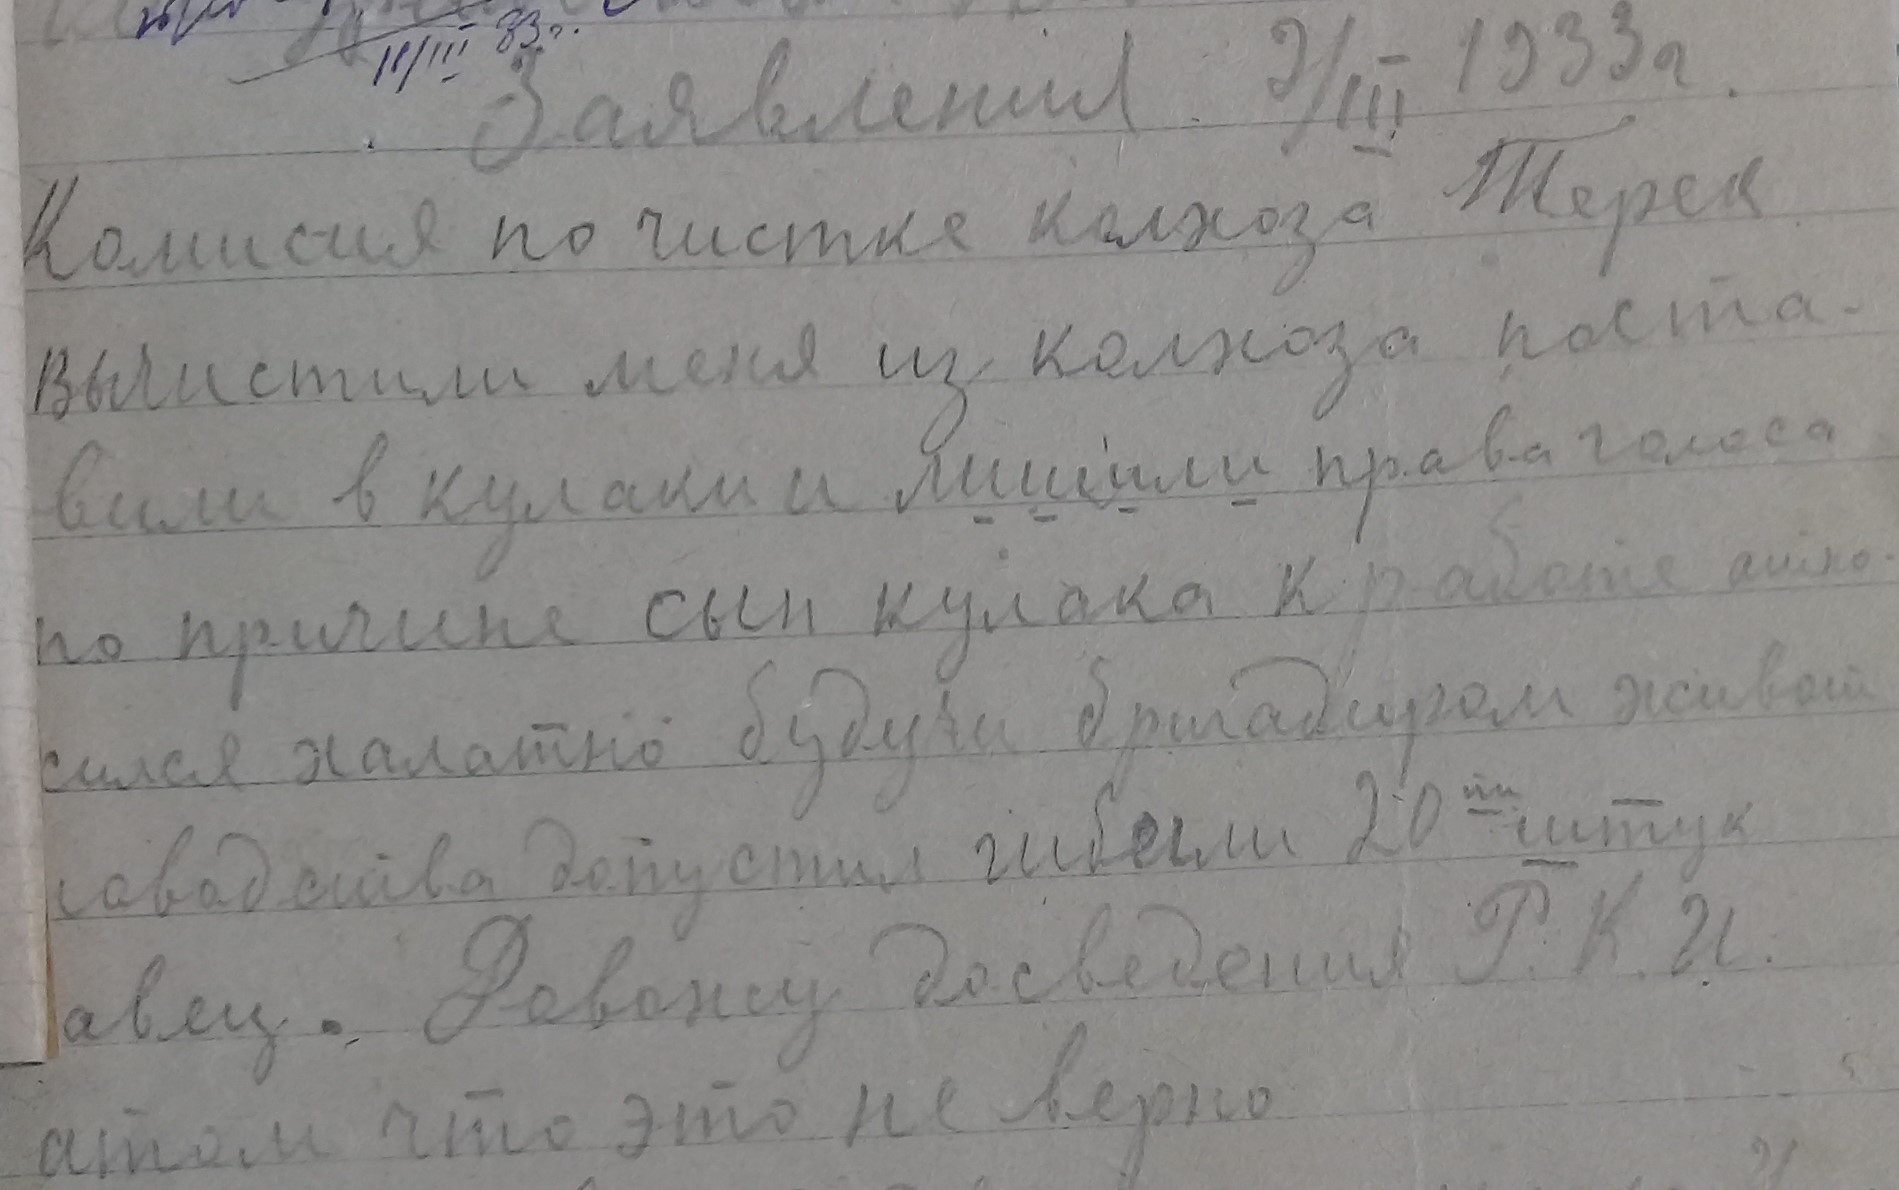 11/III 33г.
Заявления 9/III 1933г.
Комисия по чистке колхоза Терек
вычистили меня из колхоза поста-
вили в кулаки и лишили права голоса
по причине сын кулака к работе атно-
сился халатно будучи бригадиром живот
новодства допустил гибели 20 ти штук
авец. Давожу досведения Р.К.И.
атом что это не верно